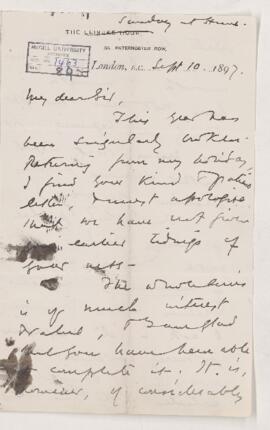 Sunday at Home
THE LEISURE HOUR
56, PATERNOSTER ROW,
McGILL UNIVERSITY
1463
London, E.C. Sept 10. 1897.
My dear Sir,
This year has
been singularly broken.
Returning from my holiday
I find your kind & patient
letter. I must apologise
that we have not given
earlier tidings of
your
The whole
is of much interest
& value, & I am glad
that you have been able
to complete it. It is,
however, if considerably